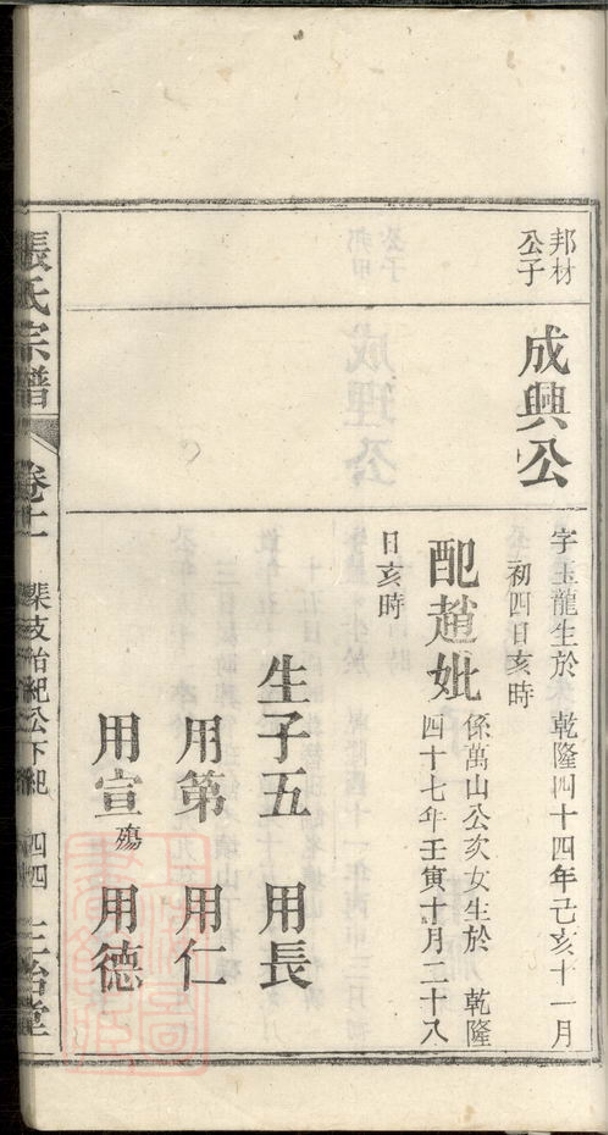 邦材
公子
成興公
字玉龍生於 乾隆四十四年己亥十一月
初四日亥時
配趙妣
係萬山公次女生於 乾隆
四十七年壬寅十月二十八
日亥時
生子五 用長
用第 用仁
用宣殤 用德
張氏宗譜 卷十一 公下紀 四四 三治堂